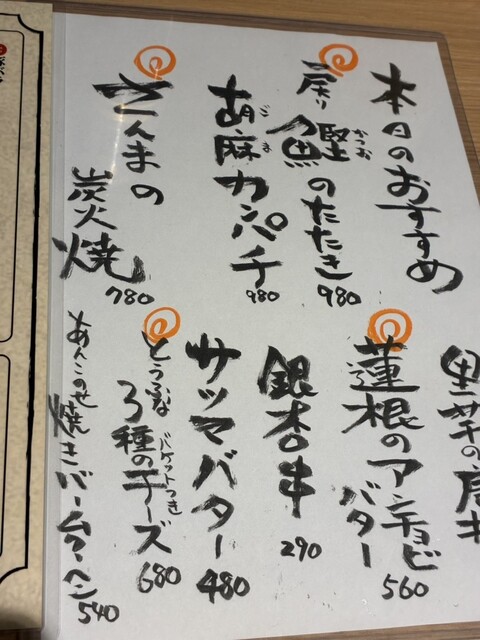 本日のおすすめ
戻り鰹のたたき
かつお
980
胡麻カンパチ
ごま
980
さんまの
炭火焼
780
里芋の唐
蓮根のアンチョビ
バター
560
銀杏串
290
サツマバター
480
とうふな
3種のチーズ
バケットつき
680
あんこのせ焼きバームクーヘン
540